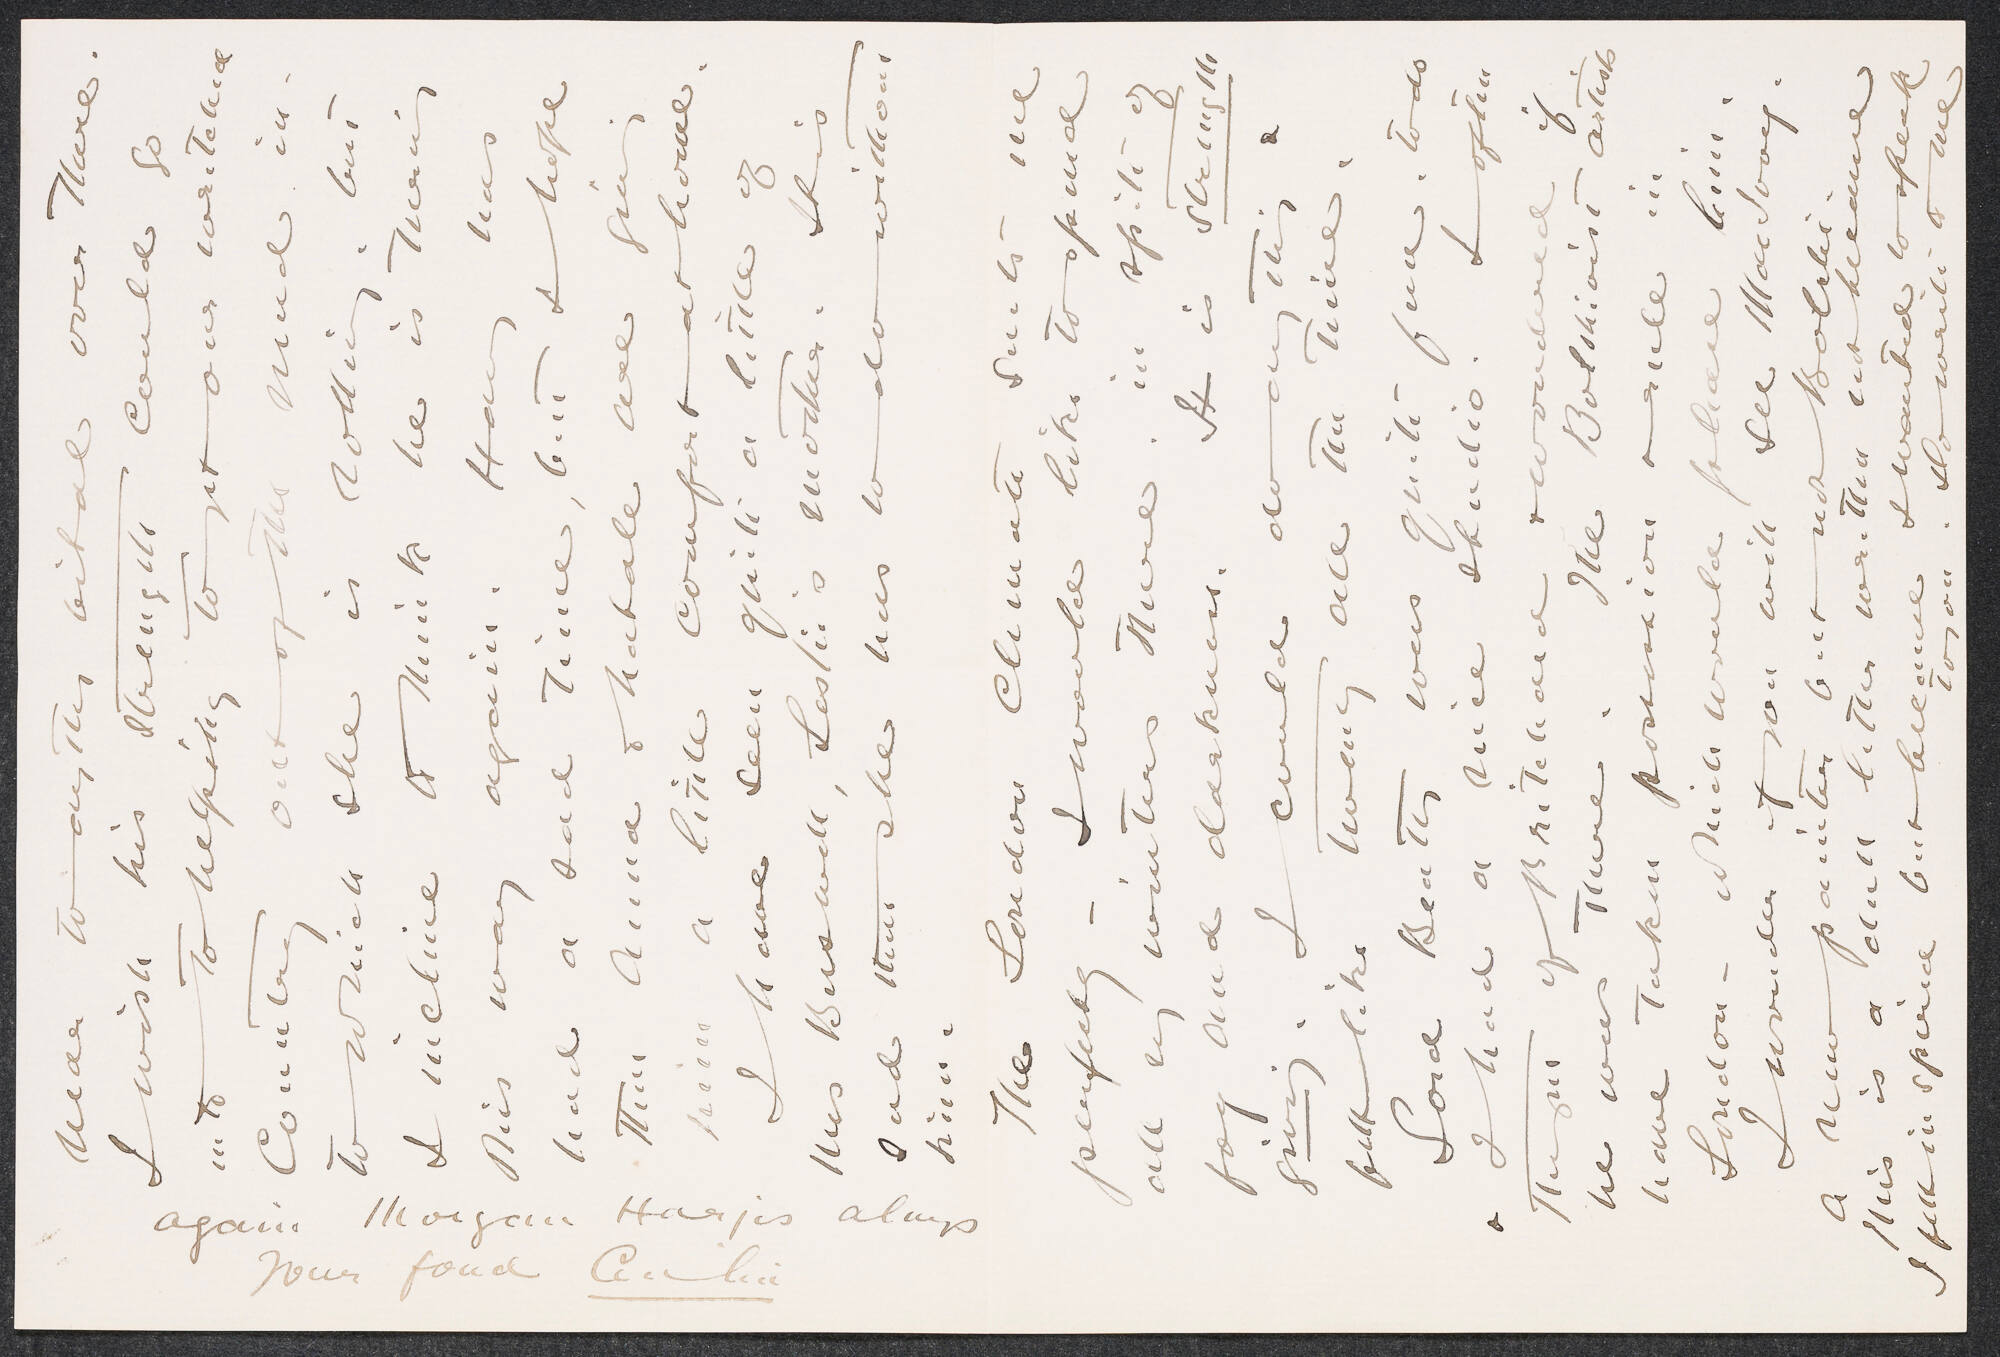 near to anything vital over there.
I wish his strength could go
into to helping to get our wretched
Country out of the mud in-
to which she is rolling, but
I incline to think he is thinking
his way again. Harry has
had a bad time, but I hope
then Anna & Natale are giving
him a little comfort at home.
I have seen quite a little of
Mrs Buswell, Leslie's mother. It is
sad then she has to do without
him.
The London Climate suits me
perfectly – I would like to spend
all my winters there. in spite of
fog and darkness. It is strength
giving. I could do anything &
felt like twenty all the time.
Lord Beatty was quite fine. to do
& I had a nice studio. I often
thought of Britchard & wondered if
he was there. The Bolshivist artists
have taken possession & rule in
London – which would please him.
I wonder if you will see MacSavoy.
A new painter but not Bolshi.
This is a dull letter written not because
I felt inspired but because I wanted to speak
to you. Do write to me
again Morgan Harjes always
Your fond Cecilia